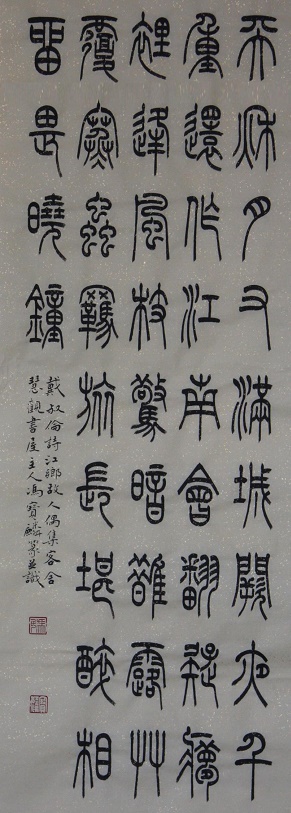 天秋月又滿城闕夜千
重還作江南會翻疑夢
裡逢風枝驚暗鵲露艸
覆寒蟲羈旅長堪醉相
留畏曉鐘
戴叔倫詩江鄉故人偶集客舍
慧觀書屋主人馮寶麟篆並識